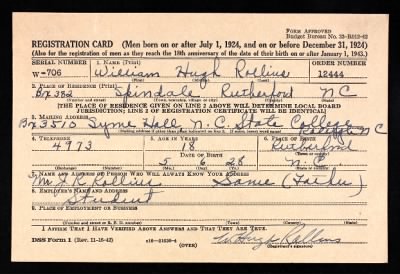 FORM APPROVED
Budget Bureau No. 33-R012-42
REGISTRATION CARD (Men born on or after July 1, 1924, and on or before December 31, 1924)
(Also for the registration of men as they reach the 18th anniversary of the date of their birth on or after January 1, 1943.)
SERIAL NUMBER 1. NAME (Print) ORDER NUMBER
W-706 William Hugh Rollins 12444
2. PLACE OF RESIDENCE (Print)
Bx 382 Spindale Rutherford NC
[THE PLACE OF RESIDENCE GIVEN ON LINE 2 ABOVE WILL DETERMINE LOCAL BOARD
JURISDICTION; LINE 2 OF REGISTRATION CERTIFICATE WILL BE IDENTICAL]
3. MAILING ADDRESS
Bx 3510 Syme Hall N.C. State College Raleigh NC
[Mailing address if other than place indicated on line 2. If same, insert word same]
4. TELEPHONE 5. AGE IN YEARS 6. PLACE OF BIRTH
4973 18 Rutherford
DATE OF BIRTH
5 6 28 N.C.
(Exchange) (Number) (Mo.) (Day) (Yr.) (State or country)
7. NAME AND ADDRESS OF PERSON WHO WILL ALWAYS KNOW YOUR ADDRESS
Rollins Same (Father)
8. EMPLOYER'S NAME AND ADDRESS
Student
9. PLACE OF EMPLOYMENT OR BUSINESS
(Number and street or R. F. D. number) (Town) (County) (State)
I AFFIRM THAT I HAVE VERIFIED ABOVE ANSWERS AND THAT THEY ARE TRUE.
DSS Form 1 (Rev. 11-16-42) 16—21630-4 W. Hugh Rollins
(OVER) (Registrant's signature)